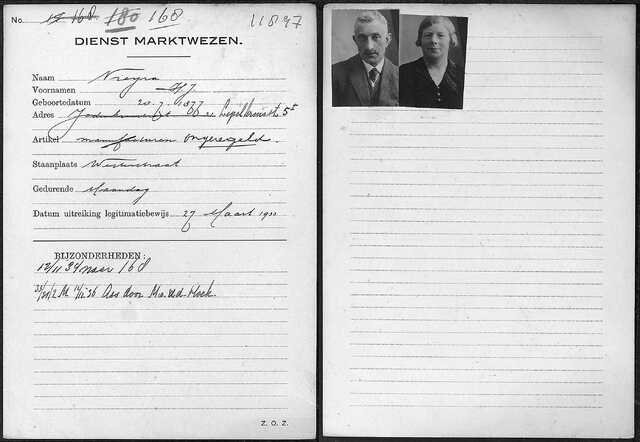 No. 15 168 180 168 11897
DIENST MARKTWEZEN.
Naam Vreyra
Voornamen HJ
Geboortedatum 20-7-1877
Adres 55
Artikel manufacturen ongeregeld.
Staanplaats Westerstraat
Gedurende Maandag
Datum uitreiking legitimatiebewijs 27 Maart 19
BIJZONDERHEDEN:
12/11 34 naar 168
Ass door v.d. Hoek.
Z. O. Z.